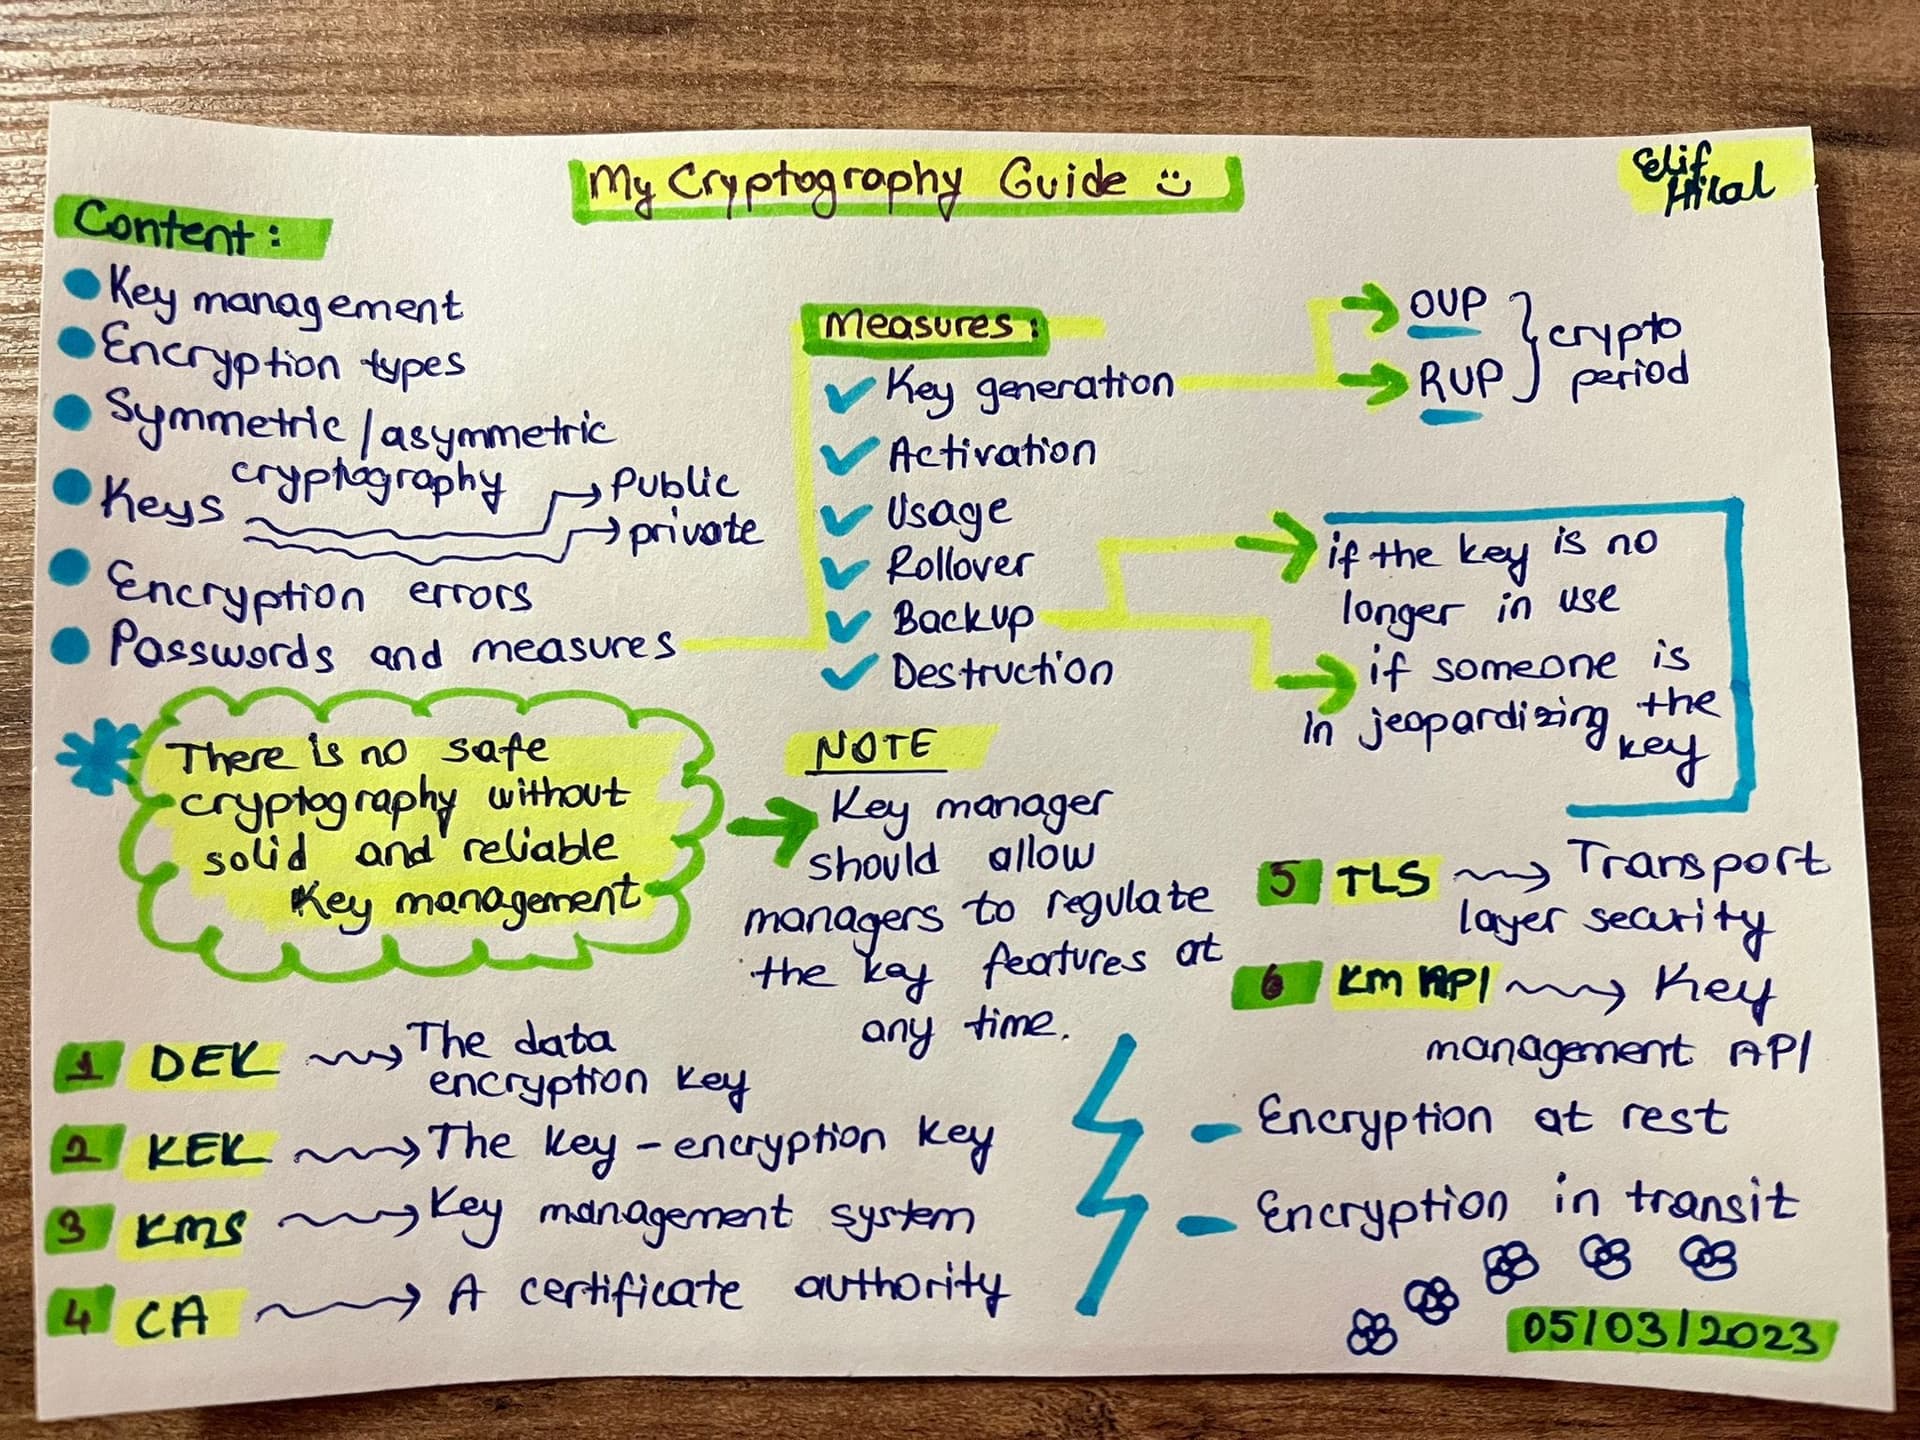 My Cryptography Guide
Elif
Hilal
Content:
Key management
Encryption types
Symmetric/asymmetric
cryptography
Keys
Public
private
Encryption errors
Passwords and measures
Measures:
Key generation
Activation
Usage
Rollover
Backup
Destruction
OUP
RUP
crypto
period
if the key is no
longer in use
if someone is
in jeopardizing the
key
There is no safe
cryptography without
solid and reliable
Key management
NOTE
Key manager
should allow
managers to regulate
the key features at
any time.
1 DEK The data
encryption key
2 KEK The key-encryption key
3 KMS Key management system
4 CA A certificate authority
5 TLS Transport
layer security
6 KM API Key
management API
- Encryption at rest
- Encryption in transit
05/03/2023